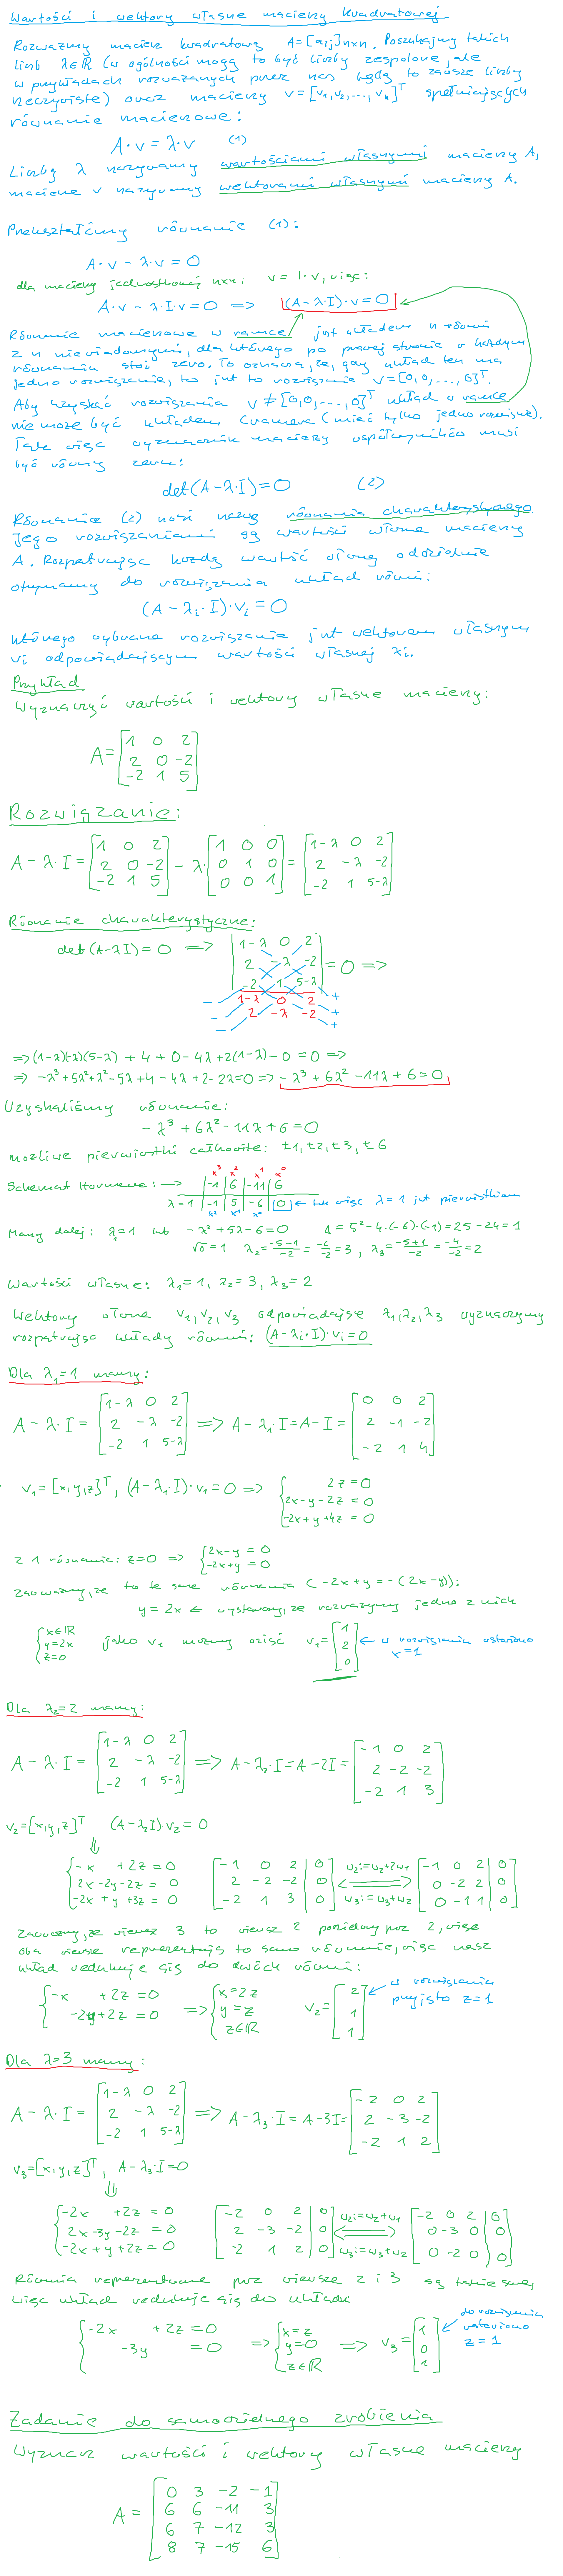 Wartości i wektory własne macierzy kwadratowej
Rozważmy macierz kwadratową A=[aij]nxn. Poszukajmy takich
liczb λ∈R (w ogólności mogą to być liczby zespolone, ale
w przykładach rozważanych przez nas będą to zawsze liczby
rzeczywiste) oraz macierzy v=[v1,v2,...,vn]^T spełniających
równanie macierzowe:
A·v=λ·v (1)
Liczby λ nazywamy wartościami własnymi macierzy A,
macierze v nazywamy wektorami własnymi macierzy A.
Przekształćmy równanie (1):
A·v-λ·v=0
dla macierzy jednostkowej nxn: v=I·v, więc:
A·v-λ·I·v=0 => (A-λ·I)·v=0
Równanie macierzowe w ramce jest układem n równań
z n niewiadomymi, dla którego po prawej stronie w każdym
równaniu stoi zero. To oznacza, że, gdy układ ten ma
jedno rozwiązanie, to jest to rozwiązanie v=[0,0,...,0]^T.
Aby uzyskać rozwiązania v≠[0,0,...,0]^T układ w ramce
nie może być układem Cramera (mieć tylko jedno rozwiązanie).
Tak więc wyznacznik macierzy współczynników musi
być równy zeru:
det(A-λ·I)=0 (2)
Równanie (2) nosi nazwę równania charakterystycznego.
Jego rozwiązaniami są wartości własne macierzy
A. Rozpatrując każdą wartość własną oddzielnie
otrzymamy do rozwiązania układ równań:
(A-λi·I)·vi=0
którego wybrane rozwiązanie jest wektorem własnym
vi odpowiadającym wartości własnej λi.
Przykład
Wyznaczyć wartości i wektory własne macierzy:
A=[1 0 2
2 0 -2
-2 1 5]
Rozwiązanie:
A-λ·I=[1 0 2; 2 0 -2; -2 1 5]-λ·[1 0 0; 0 1 0; 0 0 1]=[1-λ 0 2; 2 -λ -2; -2 1 5-λ]
Równanie charakterystyczne:
det(A-λI)=0 => |1-λ 0 2; 2 -λ -2; -2 1 5-λ|=0 =>
- 1-λ 0 2 +
- 2 -λ -2 +
- +
=>(1-λ)(-λ)(5-λ)+4+0-4λ+2(1-λ)-0=0 =>
=> -λ³+5λ²+λ²-5λ+4-4λ+2-2λ=0 => -λ³+6λ²-11λ+6=0
Uzyskaliśmy równanie:
-λ³+6λ²-11λ+6=0
możliwe pierwiastki całkowite: ±1,±2,±3,±6
x³ x² x¹ x⁰
Schemat Hornera: -> |-1|6|-11|6
λ=1 |-1|5|-6|0 <- tak więc λ=1 jest pierwiastkiem
x² x¹ x⁰
Mamy dalej: λ1=1 lub -λ²+5λ-6=0 Δ=5²-4·(-6)·(-1)=25-24=1
√Δ=1 λ2=(-5-1)/-2=-6/-2=3, λ3=(-5+1)/-2=-4/-2=2
Wartości własne: λ1=1, λ2=3, λ3=2
Wektory własne v1,v2,v3 odpowiadające λ1,λ2,λ3 wyznaczymy
rozpatrując układy równań: (A-λi·I)·vi=0
Dla λ1=1 mamy:
A-λ·I=[1-λ 0 2; 2 -λ -2; -2 1 5-λ] => A-λ1·I=A-I=[0 0 2; 2 -1 -2; -2 1 4]
v1=[x,y,z]^T, (A-λ1·I)·v1=0 => {2z=0
2x-y-2z=0
-2x+y+4z=0
z 1 równania: z=0 => {2x-y=0
-2x+y=0
Zauważmy, że to te same równania (-2x+y=-(2x-y)):
y=2x <- wystarczy, że rozważymy jedno z nich
{x∈R
y=2x
z=0
jako v1 możemy wziąć v1=[1; 2; 0] <- w rozwiązaniu ustawiono
x=1
Dla λ2=2 mamy:
A-λ·I=[1-λ 0 2; 2 -λ -2; -2 1 5-λ] => A-λ2·I=A-2I=[-1 0 2; 2 -2 -2; -2 1 3]
v2=[x,y,z]^T (A-λ2I)·v2=0
⇓
{-x+2z=0 [-1 0 2|0] w2:=w2+2w1 [-1 0 2|0]
2x-2y-2z=0 [2 -2 -2|0] <=> [0 -2 2|0]
-2x+y+3z=0 [-2 1 3|0] w3:=w3+w2 [0 -1 1|0]
Zauważmy, że wiersz 3 to wiersz 2 podzielony przez 2, więc
oba wiersze reprezentują to samo równanie, więc nasz
układ redukuje się do dwóch równań:
{-x+2z=0 => {x=2z v2=[2; 1; 1] <- w rozwiązaniu
-2y+2z=0 y=z przyjęto z=1
z∈R
Dla λ=3 mamy:
A-λ·I=[1-λ 0 2; 2 -λ -2; -2 1 5-λ] => A-λ3·I=A-3I=[-2 0 2; 2 -3 -2; -2 1 2]
v3=[x,y,z]^T, A-λ3·I=0
⇓
{-2x+2z=0 [-2 0 2|0] w2:=w2+w1 [-2 0 2|0]
2x-3y-2z=0 [2 -3 -2|0] <=> [0 -3 0|0]
-2x+y+2z=0 [-2 1 2|0] w3:=w3+w2 [0 -2 0|0]
Równania reprezentowane przez wiersze 2 i 3 są takie same,
więc układ redukuje się do układu
{-2x+2z=0 => {x=z => v3=[1; 0; 1] <- do rozwiązania
-3y=0 y=0 wstawiono
z∈R z=1
Zadanie do samodzielnego zrobienia
Wyznacz wartości i wektory własne macierzy
A=[0 3 -2 -1
6 6 -11 3
6 7 -12 3
8 7 -15 6]